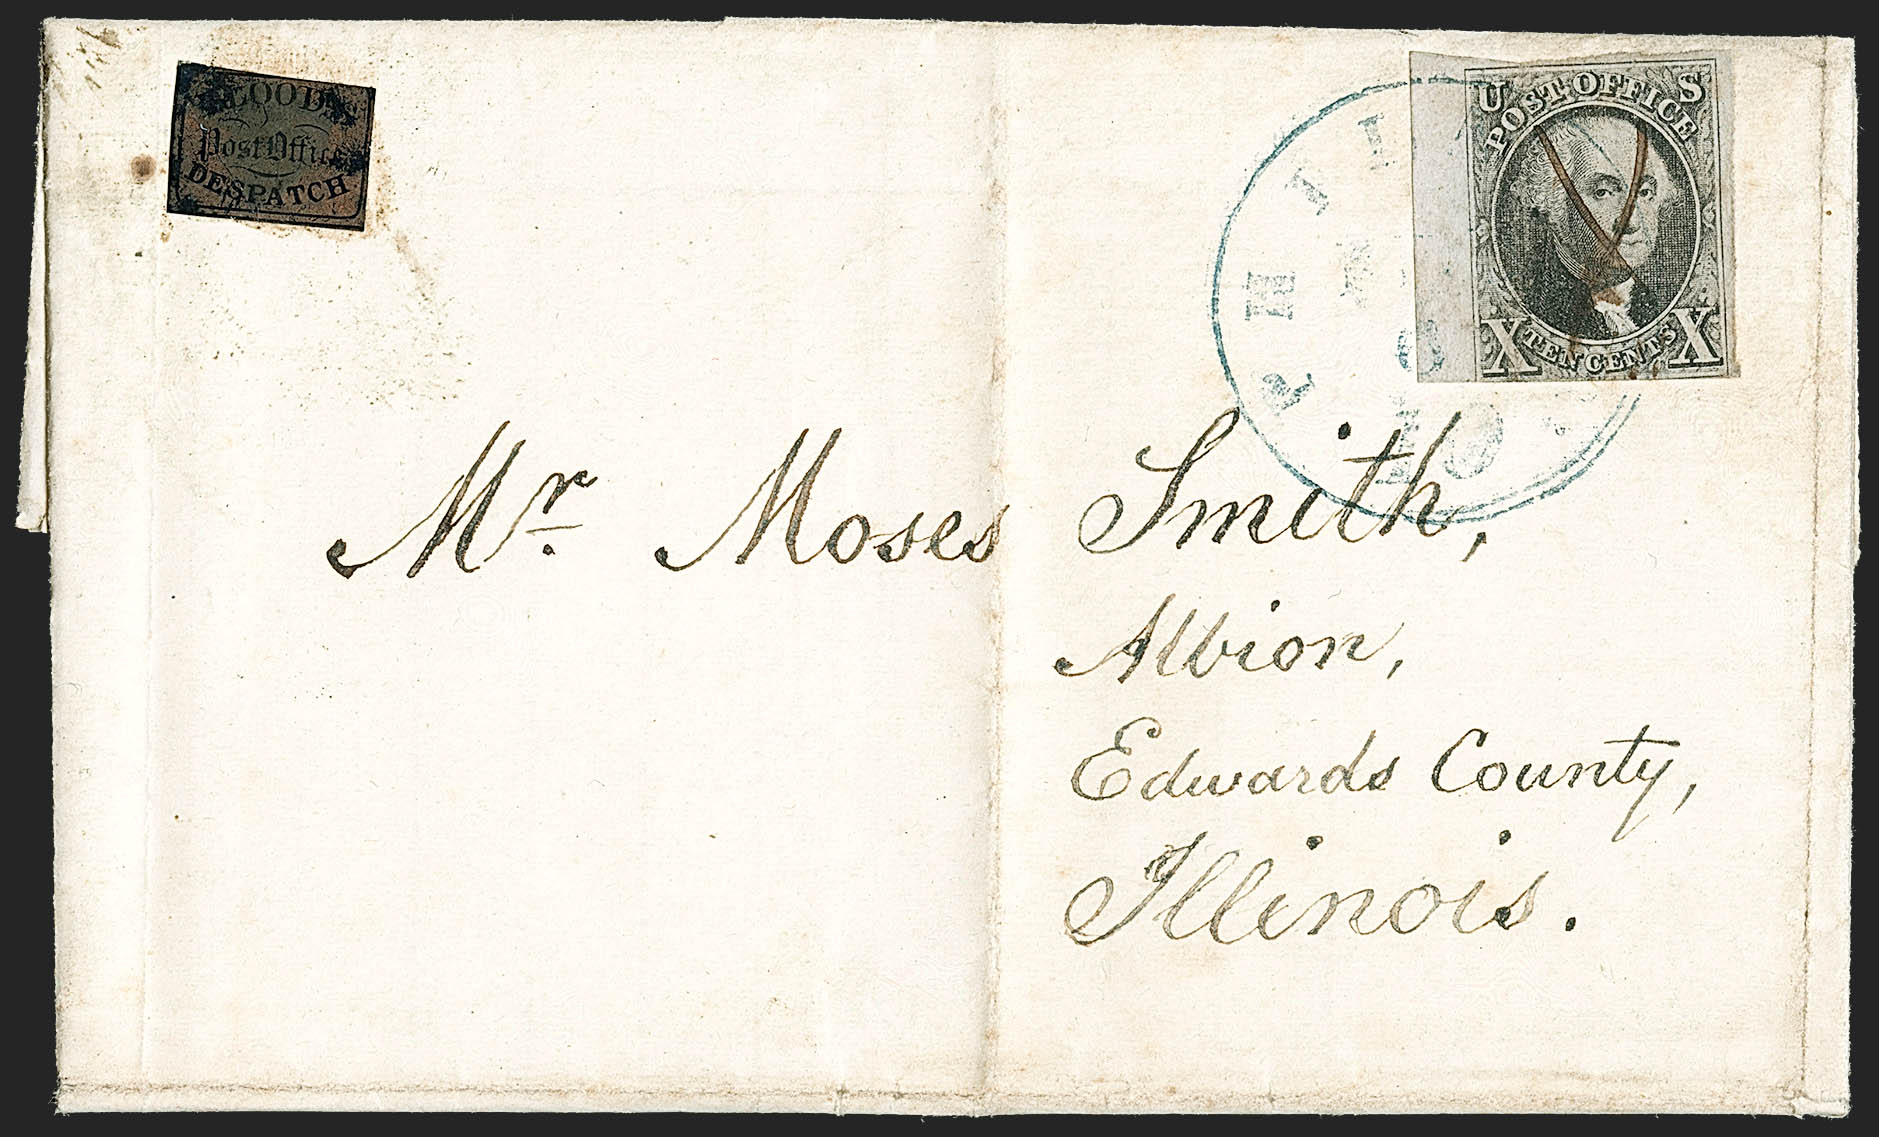 BLOOD'S
Post Office
DESPATCH
U S
POST OFFICE
X TEN CENTS X
PHIL
6
10
Mr. Moses Smith,
Albion,
Edwards County,
Illinois.